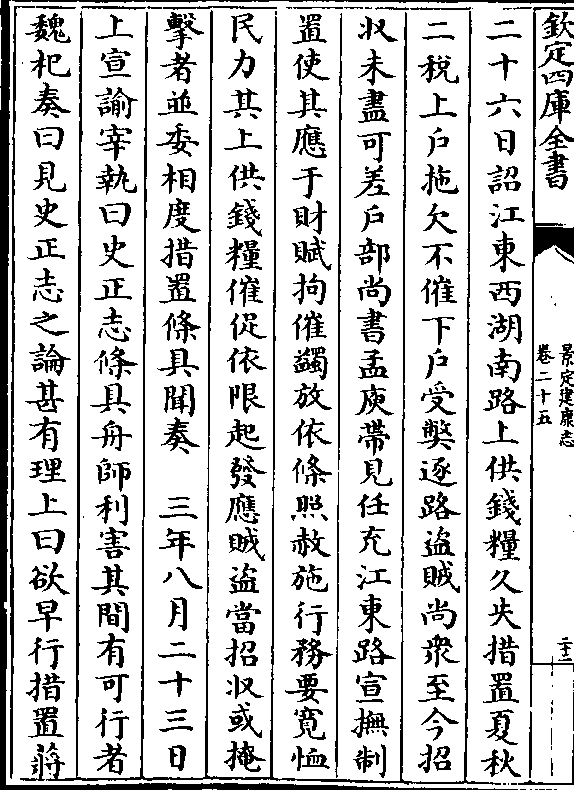 欽定四庫全書
景定建康志
卷二十五
二十六日詔江東西湖南路上供錢糧久失措置夏秋
二税上户拖欠不催下户受弊逐路盗賊尚衆至今招
収未盡可差户部尚書孟庾帶見任充江東路宣撫制
置使其應于財賦拘催蠲放依條照赦施行務要寛恤
民力其上供錢糧催促依限起發應賊盗當招収或掩
擊者並委相度措置條具聞奏　三年八月二十三日
上宣諭宰執曰史正志條具舟師利害其間有可行者
魏杞奏曰見史正志之論甚有理上曰欲早行措置蔣